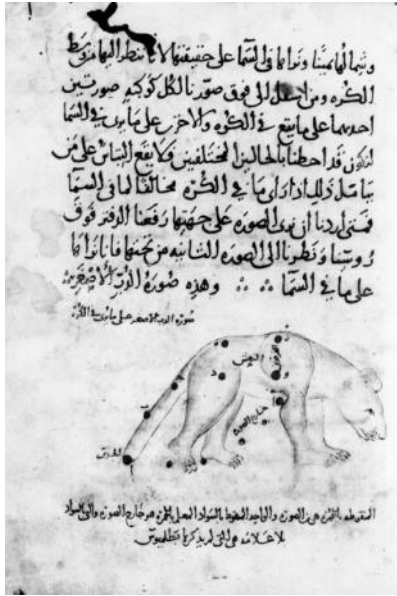 وشمالها يمينا ونراها في السما على حقيقتها لانا ننظر اليها من وسط
الكره ومن اسفل الى فوق صورنا لكل كوكبه صورتين
احديهما على ما يقع في الكره والاخرى على ما يرى في السما
لنكون قد احطنا بالحالين المختلفين فلا يقع التباس على من
يتامل ذلك اذا راى ما في الكره مخالفا لما في السما
فمتى اردنا ان نرى الصوره على جهتها رفعنا الدفتر فوق
روسنا ونظرنا الى الصوره الثانيه من تحتها فانا نراها
على ما في السما ∴ ∴ وهذه صورة الدب الاصغر
صورة الدب الاصغر على ما يرى في الكره
ز
الفرقدين
النعش
د
و
ب
خارج الصوره
الجدي
المنقوطه بالحمره هي من الصوره والواحد المنقوط بالسواد المعلم بالحمره هو خارج الصوره والتي بالسواد
بلا علامه هي التي لم يذكرها بطلميوس